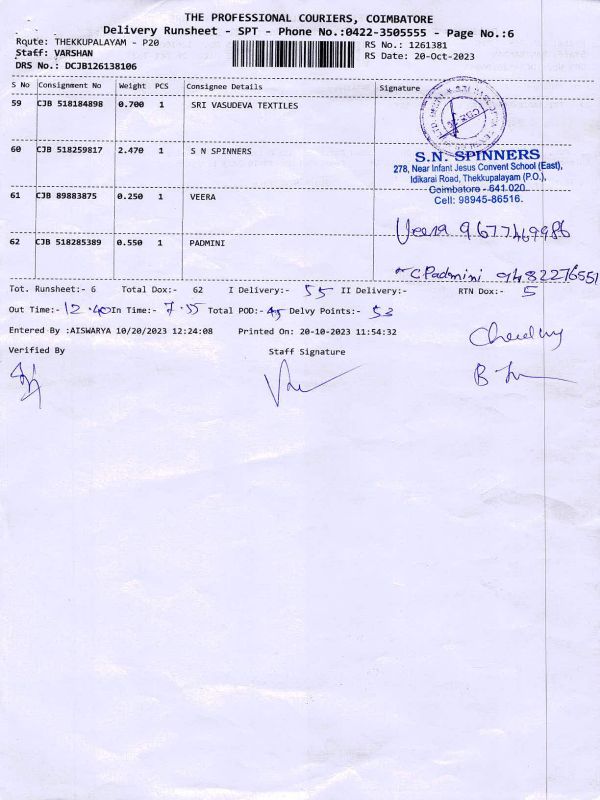 THE PROFESSIONAL COURIERS, COIMBATORE
Delivery Runsheet - SPT - Phone No.:0422-3505555 - Page No.:6
Route: THEKKUPALAYAM - P20
RS No.: 1261381
Staff: VARSHAN
RS Date: 20-Oct-2023
DRS No.: DCJB126138106
S No Consignment No Weight PCS Consignee Details Signature
59 CJB 518184898 0.700 1 SRI VASUDEVA TEXTILES
60 CJB 518259817 2.470 1 S N SPINNERS
S.N. SPINNERS
278, Near Infant Jesus Convent School (East),
Idikarai Road, Thekkupalayam (P.O.),
Coimbatore - 641 020.
Cell: 98945-86516.
61 CJB 89883875 0.250 1 VEERA
Veera 9677469986
62 CJB 518285389 0.550 1 PADMINI
C.Padmini 9482276551
Tot. Runsheet:- 6 Total Dox:- 62 I Delivery:- 55 II Delivery:- RTN Dox:- 5
Out Time:- 12.40 In Time:- 7.55 Total POD:- 45 Delvy Points:- 53
Entered By :AISWARYA 10/20/2023 12:24:08 Printed On: 20-10-2023 11:54:32
Verified By Staff Signature